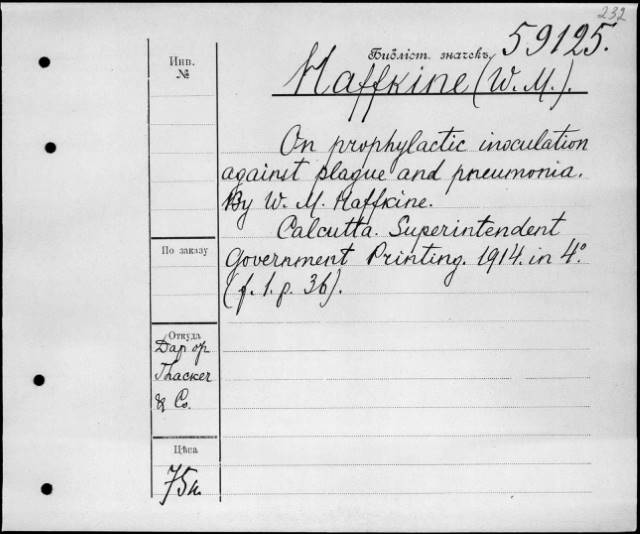 232
Библіот. значекъ
59125.
Инв.
№
Haffkine (W. M.).
On prophylactic inoculation
against plague and pneumonia.
By W. M. Haffkine.
Calcutta. Superintendent
Government Printing. 1914. in 4°
(f. 1. p. 36).
По заказу
Откуда
Дар
Thacker
& Co.
Цѣна
75к.